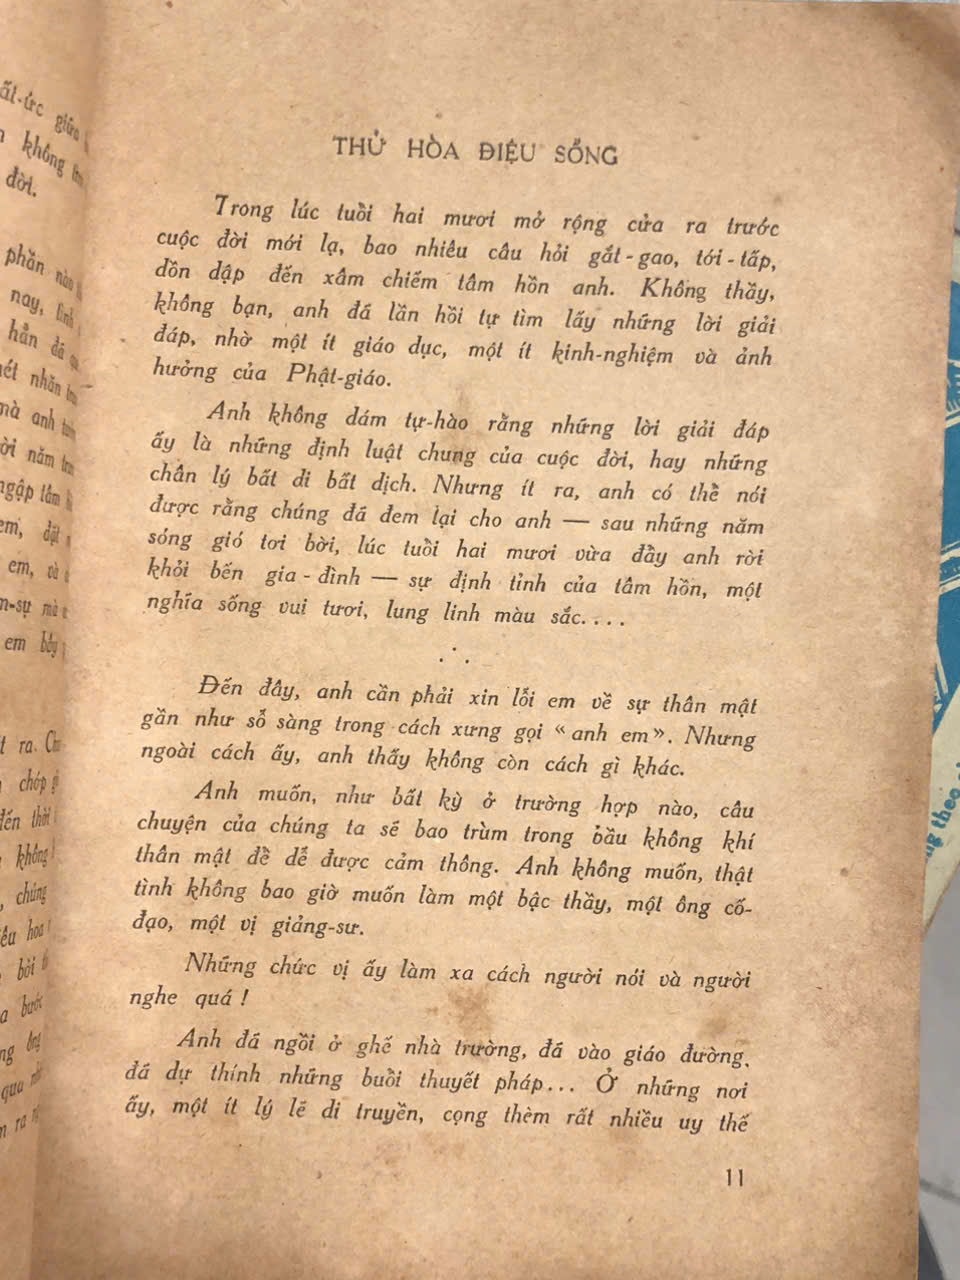 ất-ức giữa
không
đời.
phần nào
nay,
hẳn đã
nét nhăn
mà anh
ời năm
ngập
em, đặt
em, và
n-sự mà
em
ra.
chóp
đến thời
không
chúng
iêu hoa
bởi
bước
ông
qua
ra
THỬ HÒA ĐIỆU SỐNG
Trong lúc tuồi hai mươi mở rộng cửa ra trước
cuộc đời mới lạ, bao nhiêu câu hỏi gắt-gao, tới-tấp,
dồn dập đến xâm chiếm tâm hồn anh. Không thầy,
không bạn, anh đã lần hồi tự tìm lấy những lời giải
đáp, nhờ một ít giáo dục, một ít kinh-nghiệm và ảnh
hưởng của Phật-giáo.
Anh không dám tự-hào rằng những lời giải đáp
ấy là những định luật chung của cuộc đời, hay những
chân lý bất di bất dịch. Nhưng ít ra, anh có thề nói
được rằng chúng đã đem lại cho anh — sau những năm
sóng gió tơi bời, lúc tuồi hai mươi vừa đầy anh rời
khỏi bến gia-đình — sự định tỉnh của tâm hồn, một
nghĩa sống vui tươi, lung linh màu sắc....
Đến đây, anh cần phải xin lỗi em về sự thân mật
gần như sỗ sàng trong cách xưng gọi «anh em». Nhưng
ngoài cách ấy, anh thấy không còn cách gì khác.
Anh muốn, như bất kỳ ở trường hợp nào, câu
chuyện của chúng ta sẽ bao trùm trong bầu không khí
thân mật đề dễ được cảm thông. Anh không muốn, thật
tình không bao giờ muốn làm một bậc thầy, một ông cố-
đạo, một vị giảng-sư.
Những chức vị ấy làm xa cách người nói và người
nghe quá !
Anh đã ngồi ở ghế nhà trường, đã vào giáo đường,
đã dự thính những buồi thuyết pháp... Ở những nơi
ấy, một ít lý lẽ di truyền, cọng thêm rất nhiều uy thế
11
ng theo